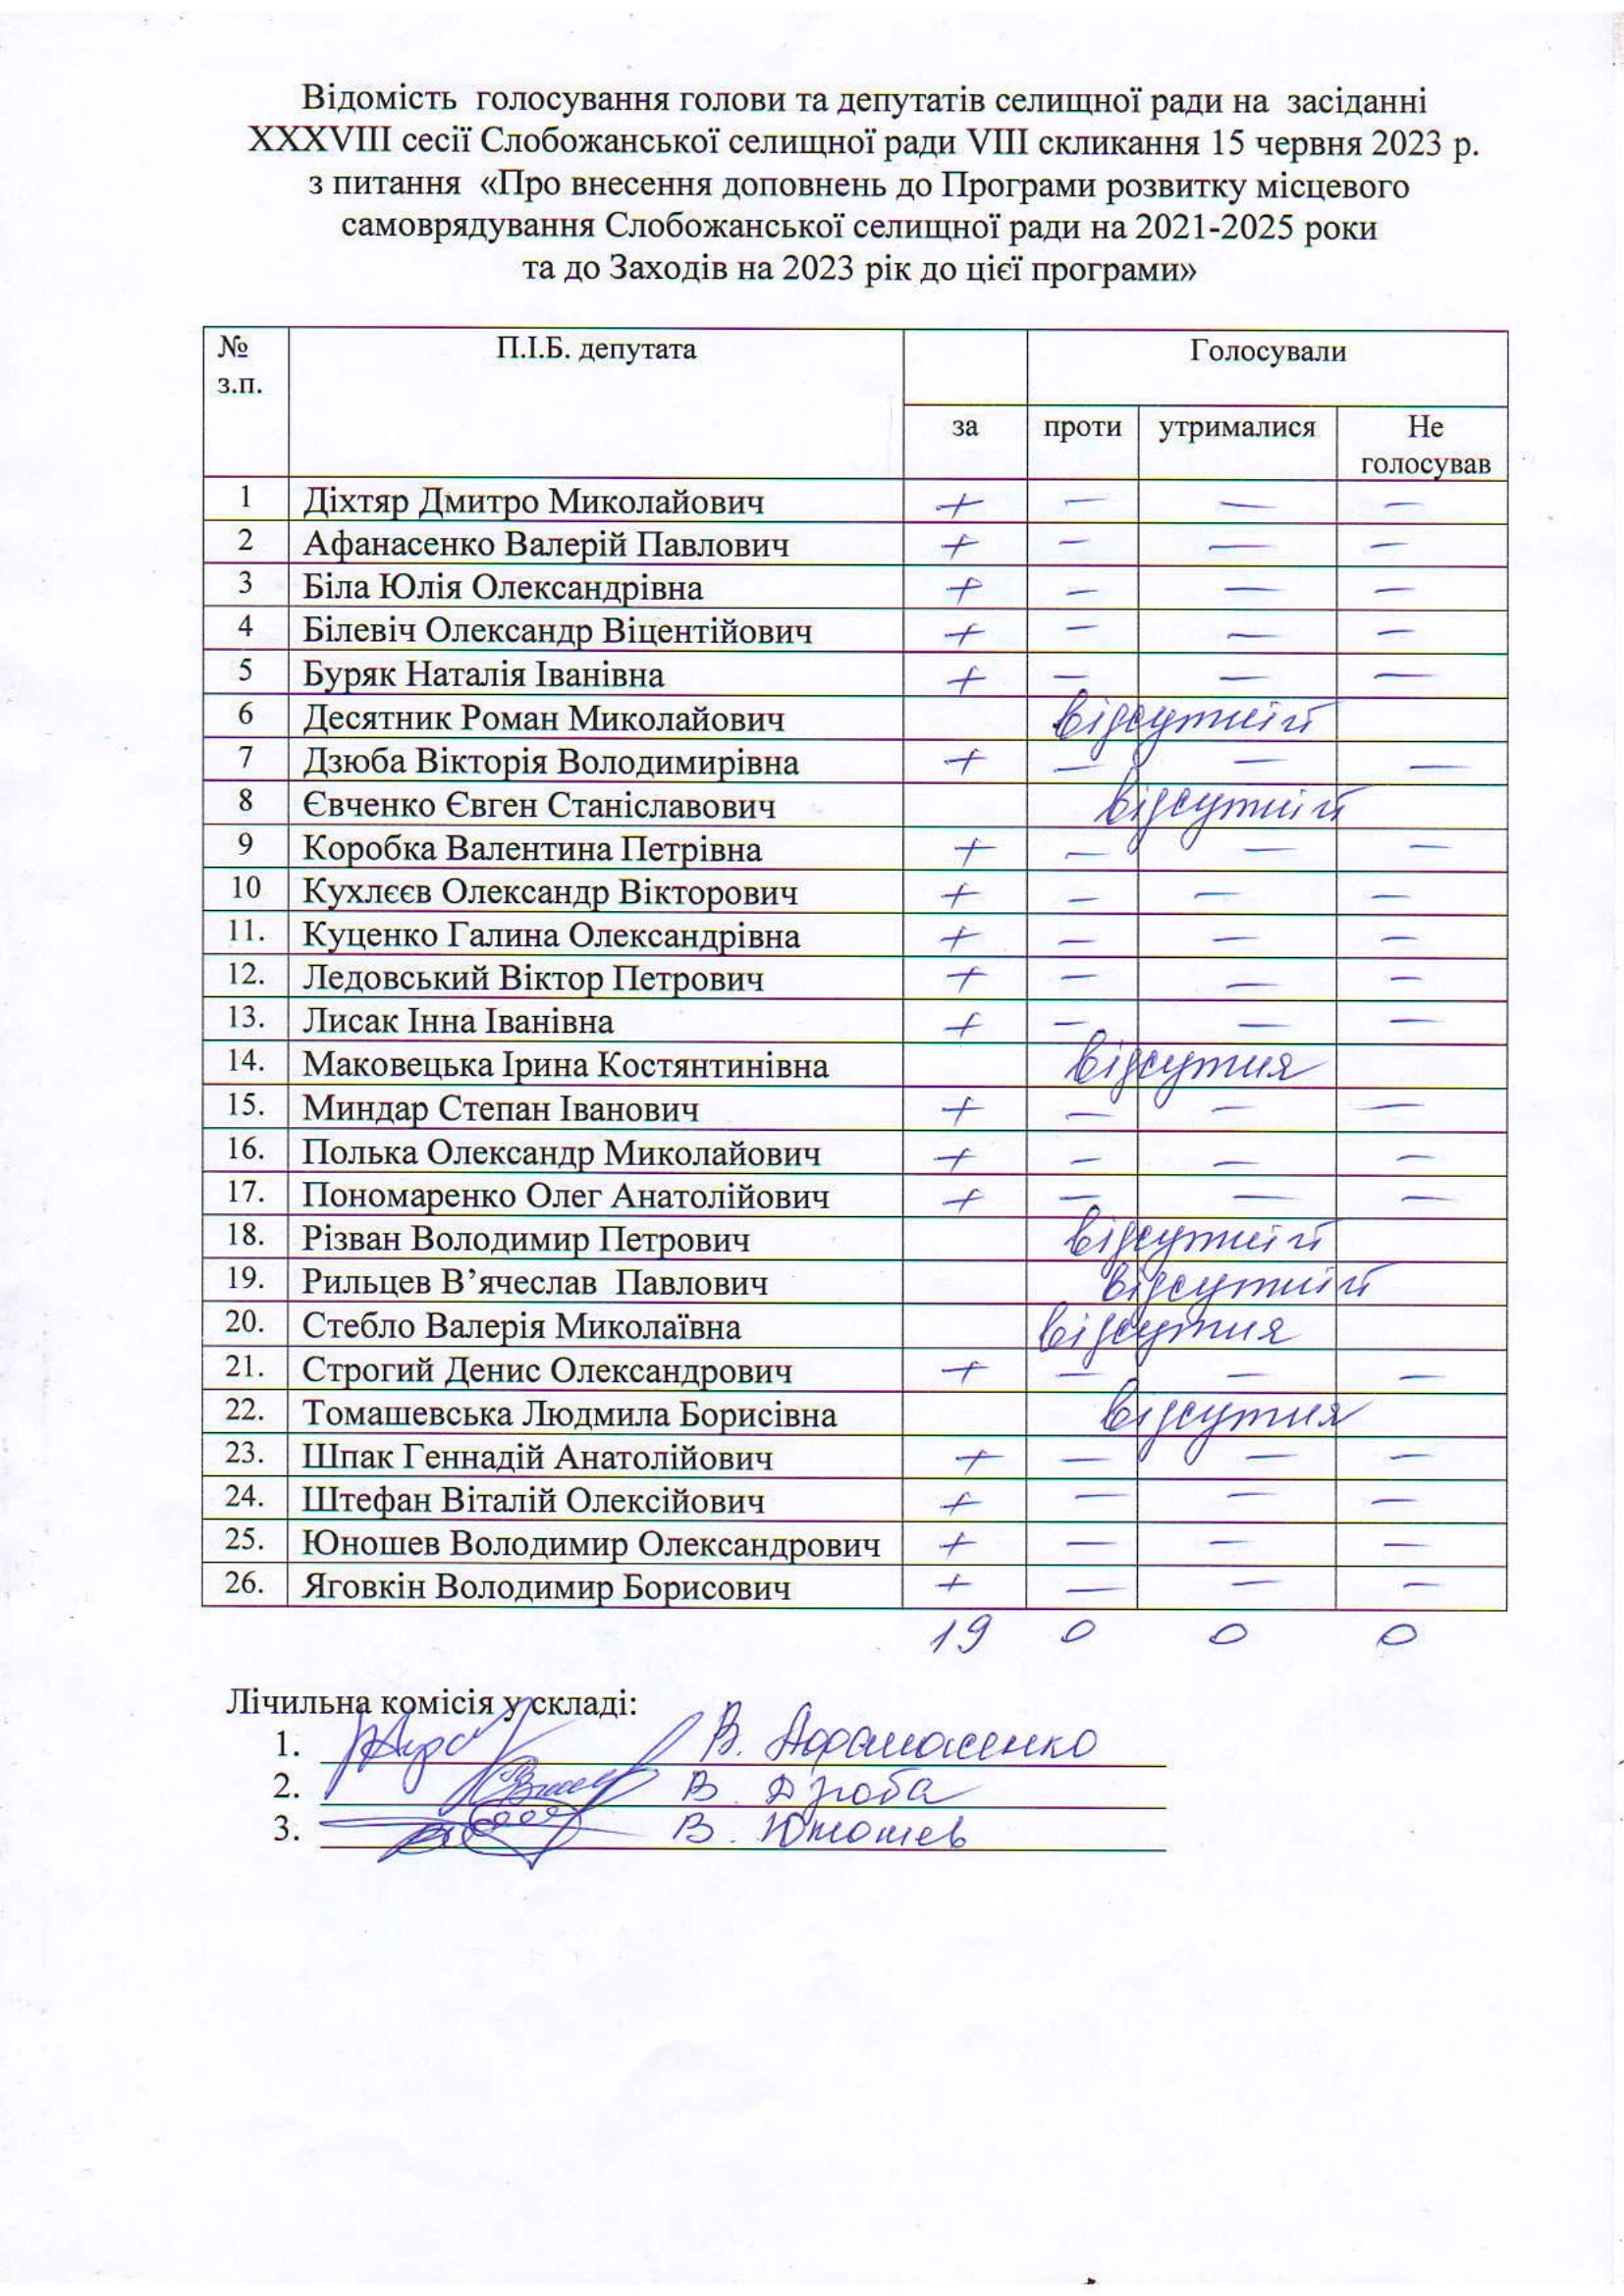 Відомість голосування голови та депутатів селищної ради на засіданні
XXXVIII сесії Слобожанської селищної ради VIII скликання 15 червня 2023 р.
з питання «Про внесення доповнень до Програми розвитку місцевого
самоврядування Слобожанської селищної ради на 2021-2025 роки
та до Заходів на 2023 рік до цієї програми»
№ з.п. П.І.Б. депутата Голосували
за проти утрималися Не голосував
1 Діхтяр Дмитро Миколайович + — — —
2 Афанасенко Валерій Павлович + — — —
3 Біла Юлія Олександрівна + — — —
4 Білевіч Олександр Віцентійович + — — —
5 Буряк Наталія Іванівна + — — —
6 Десятник Роман Миколайович відсутній
7 Дзюба Вікторія Володимирівна + — — —
8 Євченко Євген Станіславович відсутній
9 Коробка Валентина Петрівна + — — —
10 Кухлєєв Олександр Вікторович + — — —
11. Куценко Галина Олександрівна + — — —
12. Ледовський Віктор Петрович + — — —
13. Лисак Інна Іванівна + — — —
14. Маковецька Ірина Костянтинівна відсутня
15. Миндар Степан Іванович + — — —
16. Полька Олександр Миколайович + — — —
17. Пономаренко Олег Анатолійович + — — —
18. Різван Володимир Петрович відсутній
19. Рильцев В’ячеслав Павлович відсутній
20. Стебло Валерія Миколаївна відсутня
21. Строгий Денис Олександрович + — — —
22. Томашевська Людмила Борисівна відсутня
23. Шпак Геннадій Анатолійович + — — —
24. Штефан Віталій Олексійович + — — —
25. Юношев Володимир Олександрович + — — —
26. Яговкін Володимир Борисович + — — —
19 0 0 0
Лічильна комісія у складі:
1. В. Афанасенко
2. В. Дзюба
3. В. Юношев